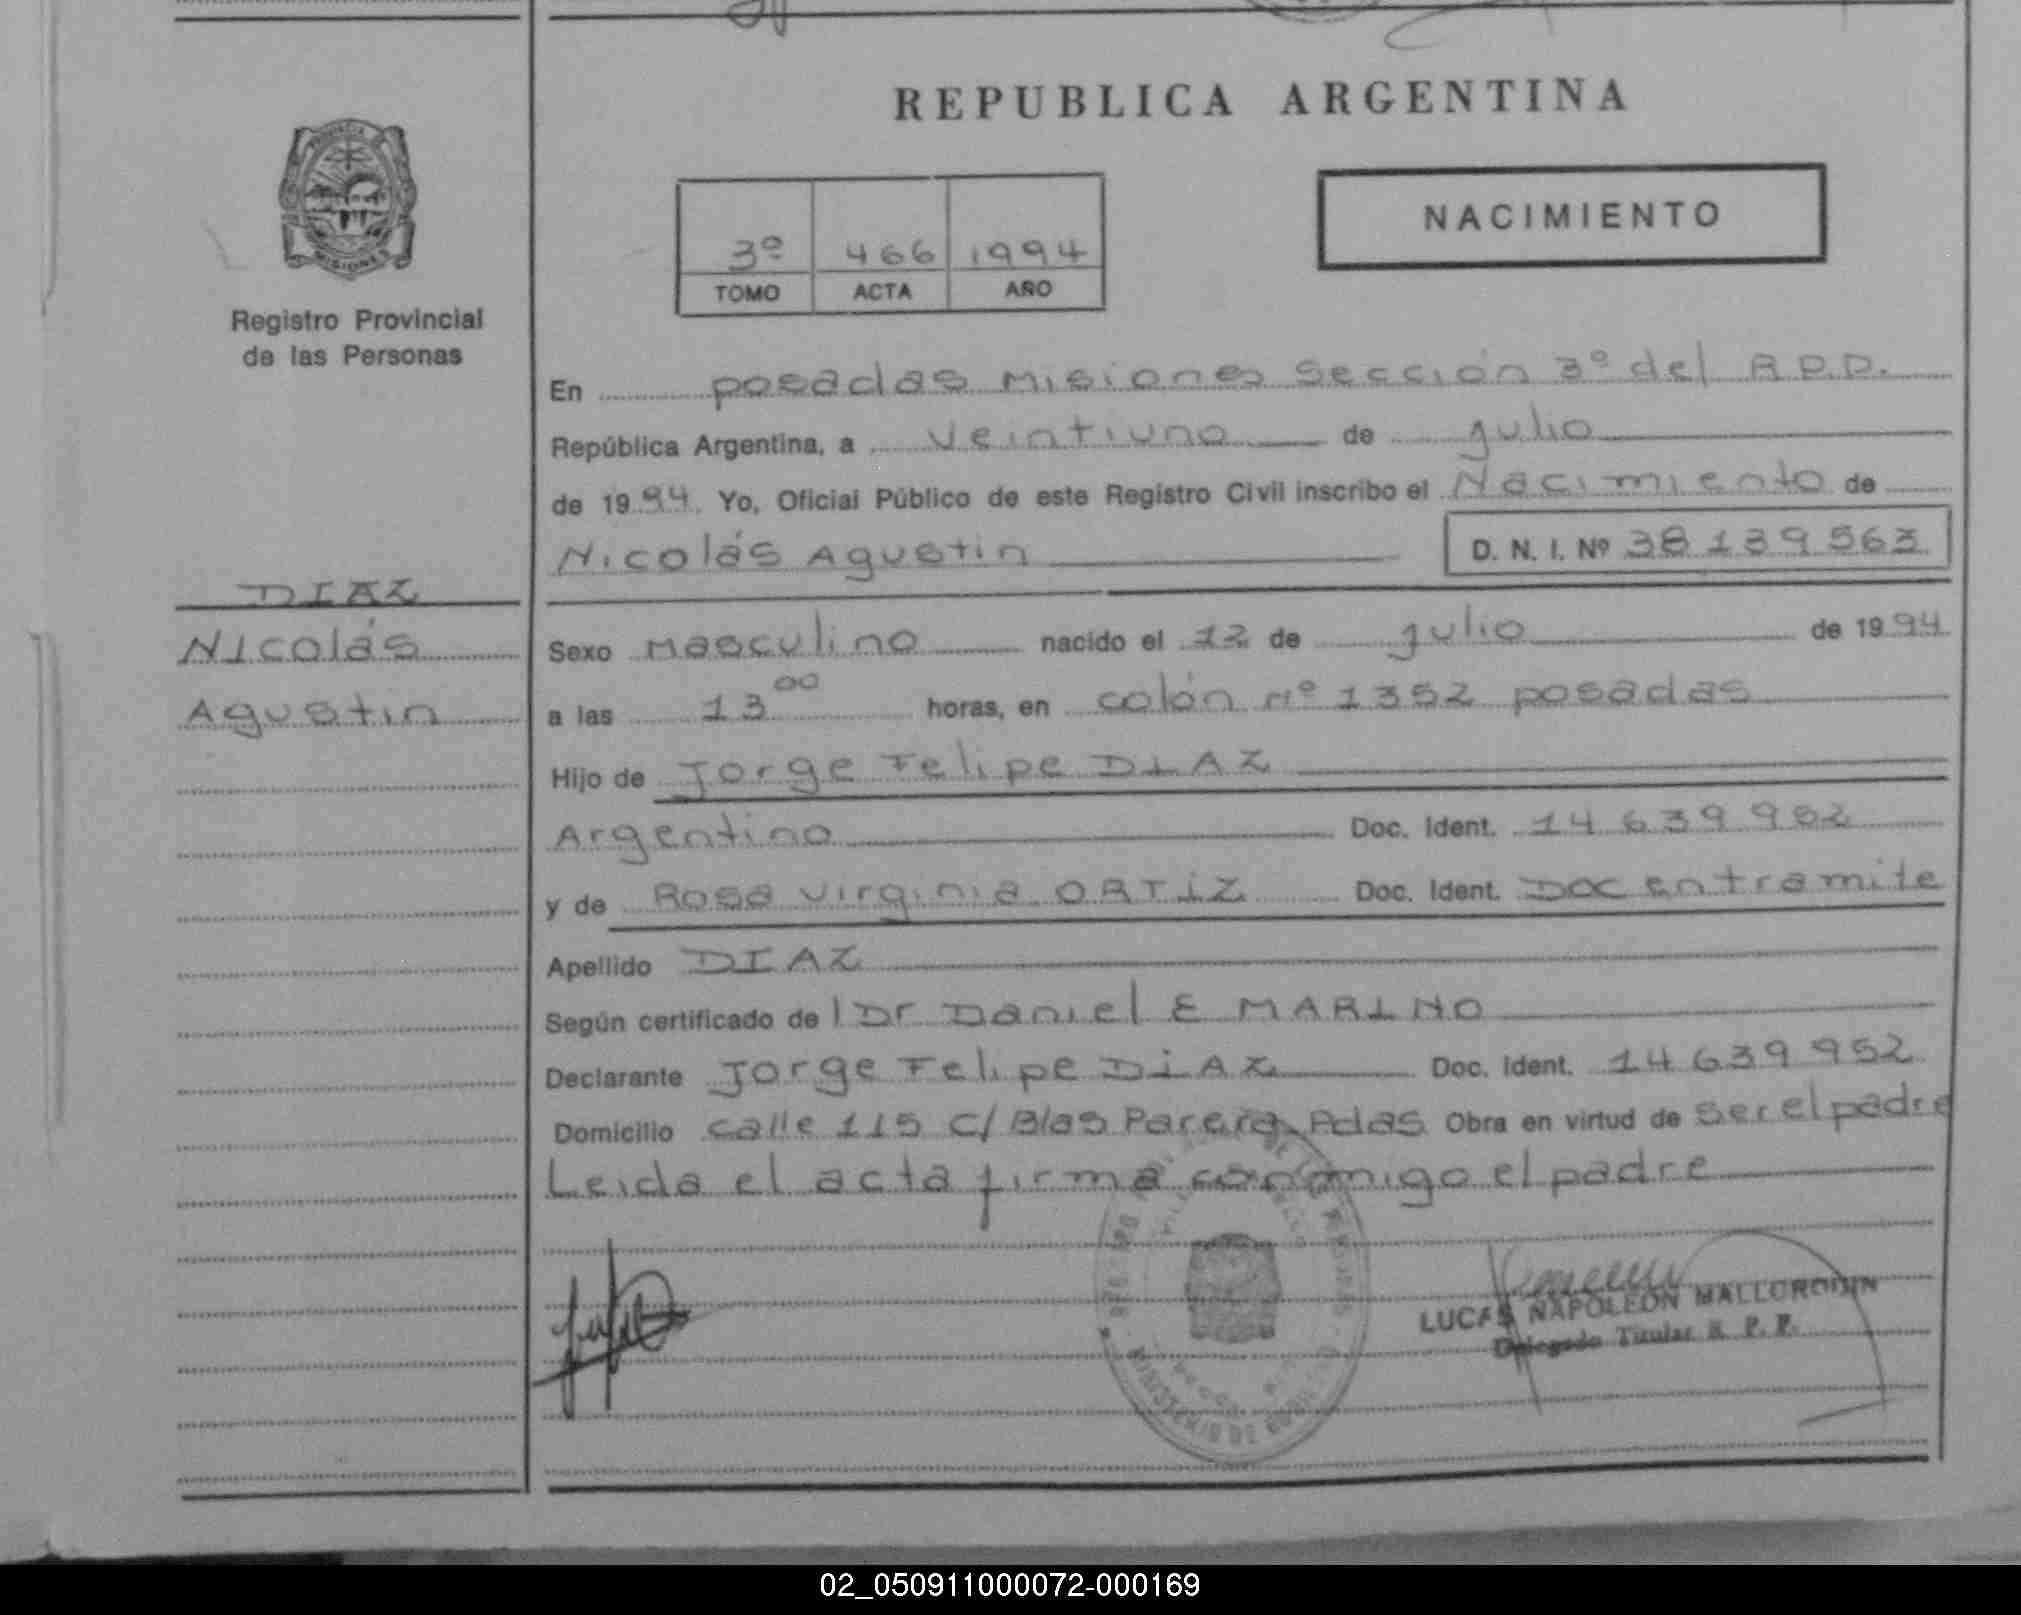 REPUBLICA ARGENTINA
PROVINCIA DE
MISIONES
Registro Provincial
de las Personas
NACIMIENTO
3º 466 1994
TOMO ACTA AÑO
En posadas Misiones Sección 3º del R.P.P.
República Argentina, a veintiuno de julio
de 1994. Yo, Oficial Público de este Registro Civil inscribo el Nacimiento de
Nicolás Agustin D. N. I. Nº 38139563
DIAZ
Nicolás
Agustin
Sexo Masculino nacido el 12 de julio de 1994
a las 13 00 horas, en colón nº 1352 posadas
Hijo de Jorge Felipe DIAZ
Argentino Doc. Ident. 14 639 952
y de Rosa Virginia ORTIZ Doc. Ident. Doc en tramite
Apellido DIAZ
Según certificado de Dr Daniel E MARINO
Declarante Jorge Felipe DIAZ Doc. Ident. 14 639 952
Domicilio calle 115 c/ Blas Parera Pdas Obra en virtud de ser el padre
Leida el acta firma conmigo el padre
LUCAS NAPOLEON
Delegado Titular R. P. P.
MINISTERIO DE GOBIERNO
02_050911000072-000169